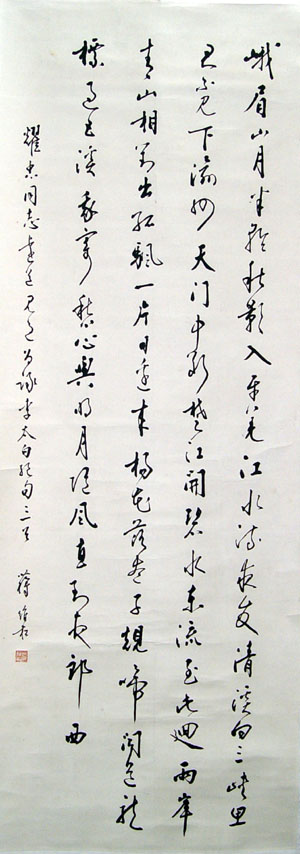 峨眉山月半轮秋影入平羌江水流夜发清溪向三峡思
君不见下渝州天门中断楚江开碧水东流至此迴两岸
青山相对出孤颿一片日边来杨花落尽子規啼闻道龙
標过五溪我寄愁心與明月随风直到夜郎西
耀忠同志李太白绝句三首 蒋維崧